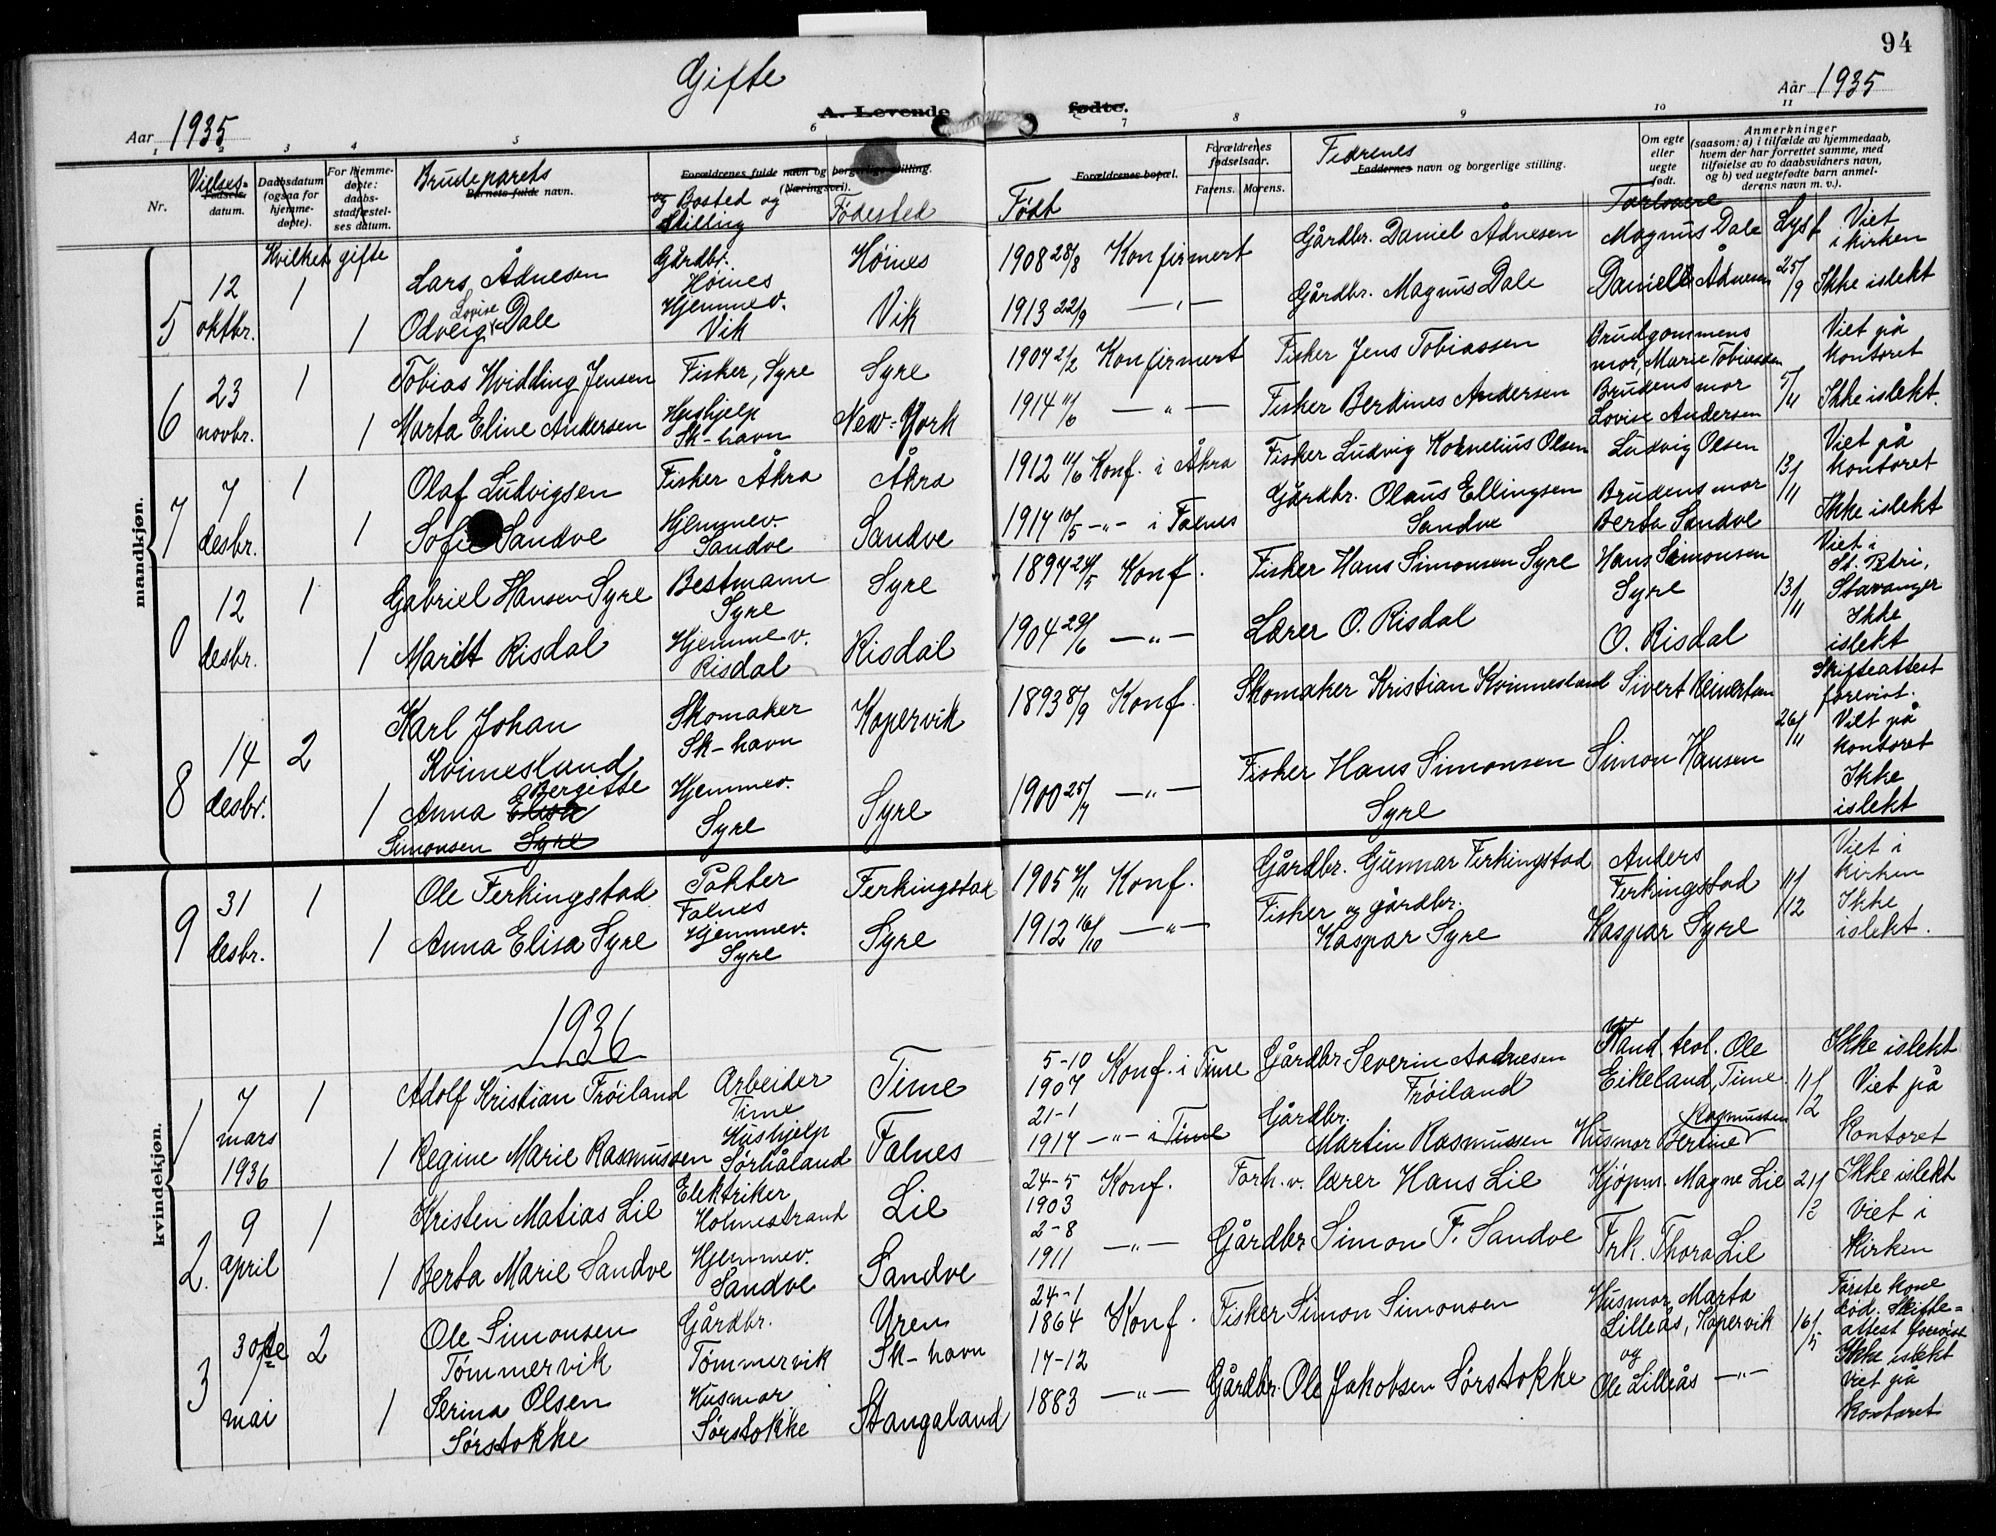 94
Gifte
Aar 1935
A. Levende fødte.
Aar 1935
1 2 3 4 5 6 7 8 9 10 11
Nr.
Vielses-
Fødsels-
datum.
Daabsdatum
(ogsaa for
hjemme-
døpte).
For hjemme-
døpte:
daabs-
stadfæstel-
ses datum.
Brudeparets
Barnets fulde navn.
Forældrenes fulde navn og borgerlige stilling.
(Næringsvei).
og Bosted og
Stilling
Fødested
Forældrenes bopæl.
Født
Forældrenes
fødselsaar.
Farens. Morens.
Fedrenes
Faddernes navn og borgerlige stilling.
Om egte
eller
uegte
født.
Forlovere
Anmerkninger
(saasom: a) i tilfælde av hjemmedaab,
hvem der har forrettet samme, med
tilføielse av to daabsvidners navn,
og b) ved uegtefødte barn anmel-
derens navn m. v.).
Lyst
mandkjøn.
Hvilket gifte
5
12
oktbr.
1
Lars Ådnesen
Gårdbr.
Høines
Høines
1908 28/8 Konfirmert
Gårdbr. Daniel Ådnesen
Magnus Dale
25/9
Viet
i kirken
1
Lovise
Odveig Dale
Hjemmev.
Vik
Vik
1913 22/9 —"—
Gårdbr. Magnus Dale
Daniel Ådnesen
Ikke islekt
6
23
novbr.
1
Tobias Hvidding Jensen
Fisker, Syre
Syre
1907 2/2 Konfirmert
Fisker Jens Tobiassen
Brudgommens
mor, Marie Tobiassen
5/11
Viet på
kontoret
1
Marta Eline Andersen
Hushjelp
Sk-havn
New-York
1914 11/6 —"—
Fisker Berdines Andersen
Brudens mor
Lovise Andersen
Ikke islekt.
7
7
desbr.
1
Olaf Ludvigsen
Fisker Åkra
Åkra
1912 11/6 Konf. i Åkra
Fisker Ludvig Kornelius Olsen
Ludvig Olsen
13/11
Viet på
kontoret
1
Sofie Sandve
Hjemmev.
Sandve
Sandve
1914 10/5 —"— i Falnes
Gårdbr. Olaus Ellingsen
Sandve
Brudens mor
Berta Sandve
Ikke islekt
0
12
desbr.
1
Gabriel Hansen Syre
Bestmann
Syre
Syre
1897 24/5 Konf.
Fisker Hans Simonsen Syre
Hans Simonsen
Syre
13/11
Viet i
St. Petri,
Stavanger
1
Marit Risdal
Hjemmev.
Risdal
Risdal
1904 29/6 —"—
Lærer O. Risdal
O. Risdal
Ikke
islekt
8
14
desbr.
2
Karl Johan
Kvinesland
Skomaker
Sk-havn
Kopervik
1893 8/9 Konf.
Skomaker Kristian Kvinnesland
Sivert Reinertsen
26/11
Skifteattest
forevist.
Viet på
kontoret
1
Bergitte
Anna Elisa
Simonsen Syre
Hjemmev.
Syre
Syre
1900 25/7 —"—
Fisker Hans Simonsen
Syre
Simon Hansen
Ikke
islekt
9
31
desbr.
1
Ole Ferkingstad
Pakter
Falnes
Ferkingstad
1905 2/11 Konf.
Gårdbr. Gunnar Ferkingstad
Anders
Ferkingstad
11/12
Viet i
kirken
1
Anna Elisa Syre
Hjemmev.
Syre
Syre
1912 16/10 —"—
Fisker og gårdbr.
Kaspar Syre
Kaspar Syre
Ikke
islekt.
1936
kvindekjøn.
1
7
mars
1936
1
Adolf Kristian Frøiland
Arbeider
Time
Time
5-10
1907 Konf. i Time
Gårdbr. Severin Aadnesen
Frøiland
Kand. teol. Ole
Eikeland, Time.
11/2
Ikke islekt
Viet på
1
Regine Marie Rasmussen
Hushjelp
Sørhåland
Falnes
21-1
1917 —"— i Time
Gårdbr.
Martin Rasmussen
Rasmussen
Husmor Bertine
Kontoret
2.
9
april
1
Kristen Matias Lie
Elektriker
Holmestrand
Lie
24-5
1903 Konf.
Forh. v. lærer Hans Lie
Kjøpm. Magne Lie
21/3
Ikke islekt
viet i
1
Berta Marie Sandve
Hjemmev.
Sandve
Sandve
2-8
1911 —"—
Gårdbr. Simon F. Sandve
Frk. Thora Lie
Kirken
3
30te
mai
2
Ole Simonsen
Tømmervik
Gårdbr.
Tømmervik
Uren
Sk-havn
24-1
1864 Konf.
Fisker Simon Simonsen
Husmor Marta
Lilleås, Kopervik
og
16/5
Første kone
død. Skifte-
attest forevist
Ikke islekt
1
Serina Olsen
Sørstokke
Husmor
Sørstokke
Stangaland
17-12
1883 —"—
Gårdbr. Ole Jakobsen Sørstokke
Ole Lilleås —"—
viet på
kontoret